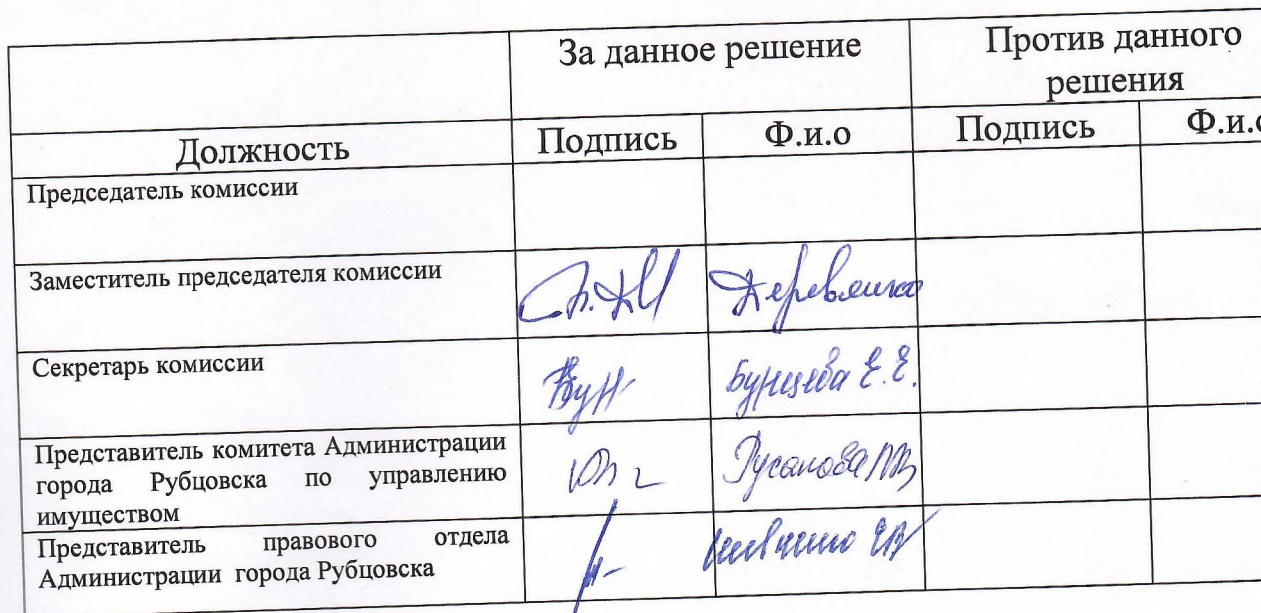 За данное решение
Против данного
решения
Должность
Подпись
Ф.и.о
Подпись
Ф.и.о
Председатель комиссии
Заместитель председателя комиссии
Деревянко
Секретарь комиссии
Бунцева Е.Е.
Представитель комитета Администрации
города Рубцовска по управлению
имуществом
Русанова
Представитель правового отдела
Администрации города Рубцовска